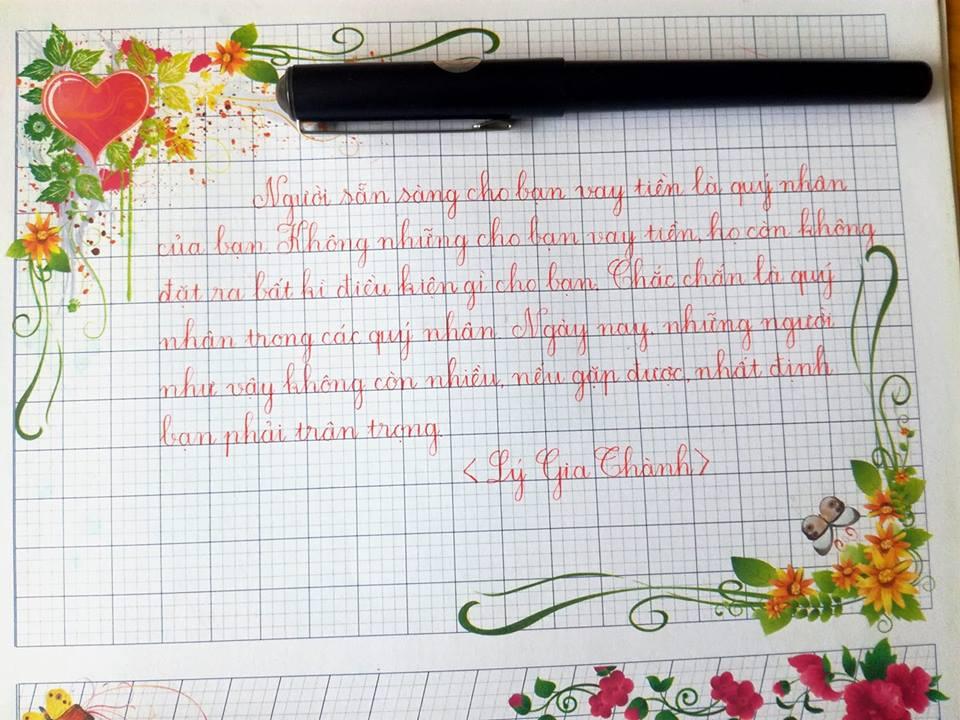 Người sẵn sàng cho bạn vay tiền là quý nhân
của bạn. Không những cho bạn vay tiền, họ còn không
đặt ra bất kì điều kiện gì cho bạn. Chắc chắn là quý
nhân trong các quý nhân. Ngày nay, những người
như vậy không còn nhiều, nếu gặp được, nhất định
bạn phải trân trọng.
<Lý Gia Thành>